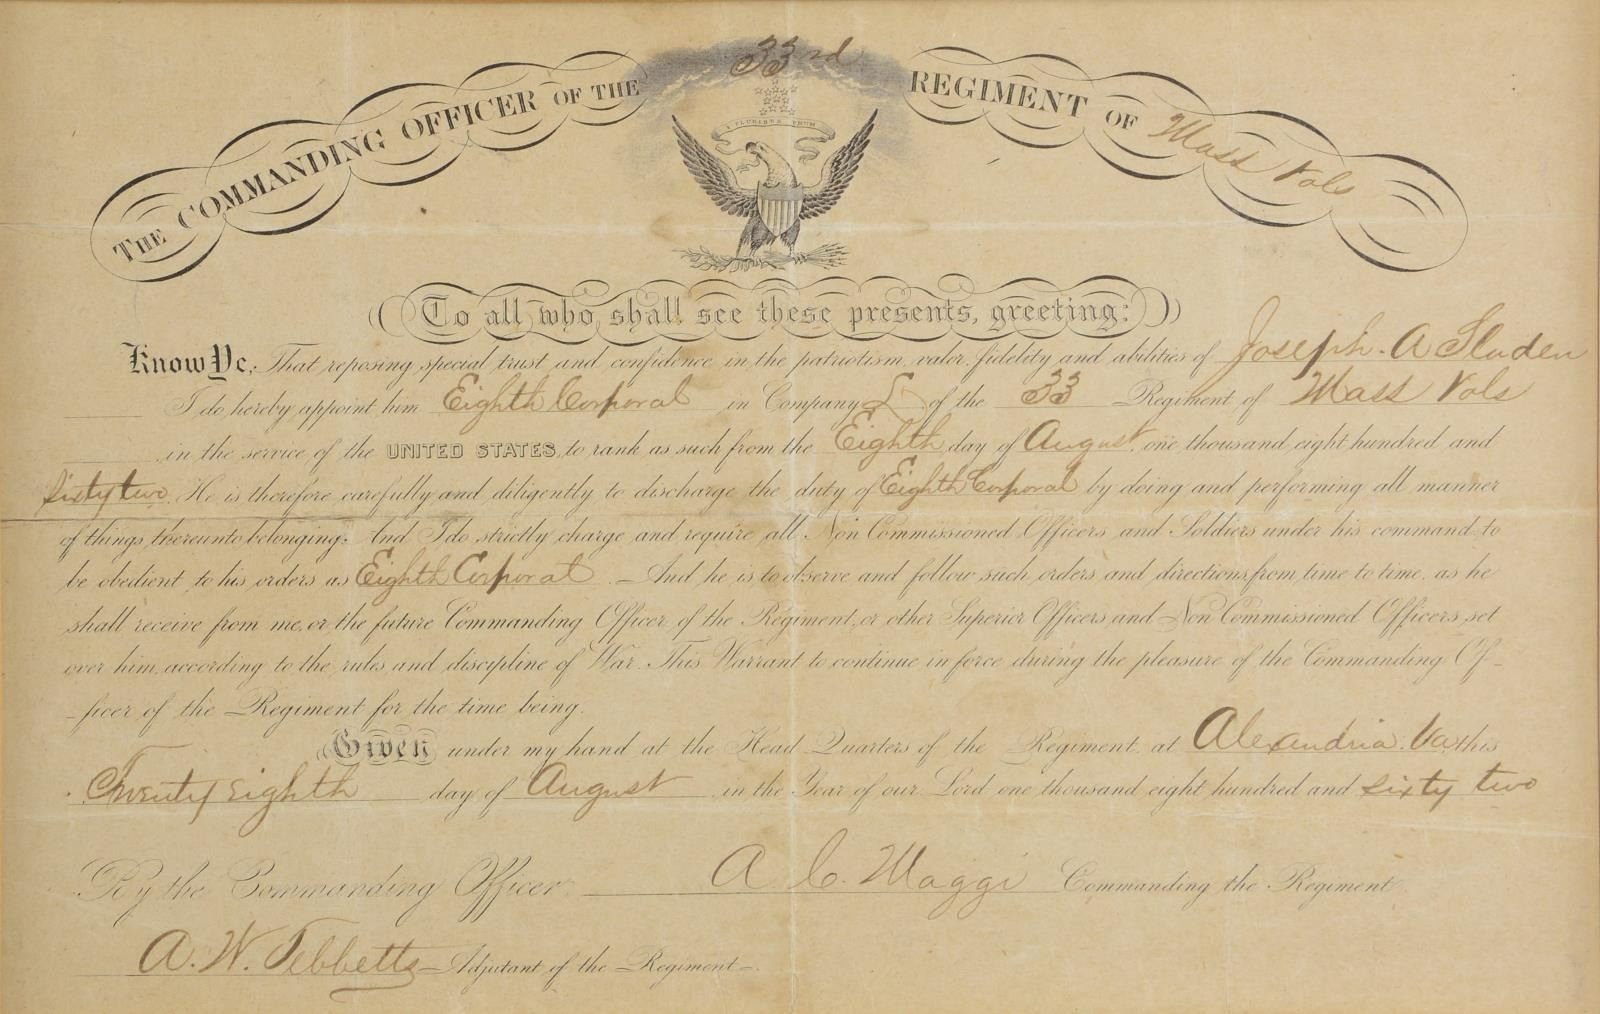 THE COMMANDING OFFICER OF THE 33rd REGIMENT OF Mass Vols
E PLURIBUS UNUM
To all who shall see these presents, greeting:
Know Ye, That reposing special trust and confidence in the patriotism, valor, fidelity and abilities of Joseph. A Sladen
I do hereby appoint him Eighth Corporal in Company of the 33 Regiment of Mass Vols
in the service of the UNITED STATES, to rank as such from the Eighth day of August one thousand eight hundred and
sixty two. He is therefore carefully and diligently to discharge the duty of Eighth Corporal by doing and performing all manner
of things thereunto belonging. And I do strictly charge and require all Non Commissioned Officers and Soldiers under his command, to
be obedient to his orders as Eighth Corporal. And he is to observe and follow such orders and directions, from time to time, as he
shall receive from me, or the future Commanding Officer of the Regiment, or other Superior Officers and Non Commissioned Officers, set
over him, according to the rules and discipline of War. This Warrant to continue in force during the pleasure of the Commanding Of-
-ficer of the Regiment for the time being.
Given under my hand at the Head Quarters of the Regiment at Alexandria. Va this
Twenty eighth day of August in the Year of our Lord one thousand eight hundred and sixty two
By the Commanding Officer. A. C. Maggi Commanding the Regiment.
A. W. Tebbetts Adjutant of the Regiment.